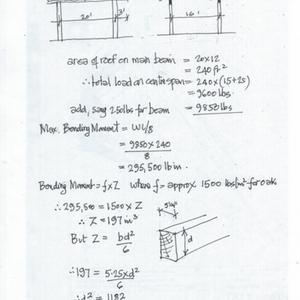 20' 3' 16'
area of roof on main beam = 20x12
= 240 ft²
∴ total load on centre span = 240 x (15+25)
= 9600 lbs.
add, say 250 lbs for beam = 9850 lbs
Max. Bending Moment = WL/8
= 9850 x 240
8
= 295,500 lb in.
Bending Moment = f x Z where f = approx 1500 lbs/in² for oak
∴ 295,500 = 1500 x Z
∴ Z = 197 in³
5¼"
But Z = bd²
6
d
∴ 197 = 5.25 x d²
6
∴ d² = 1182